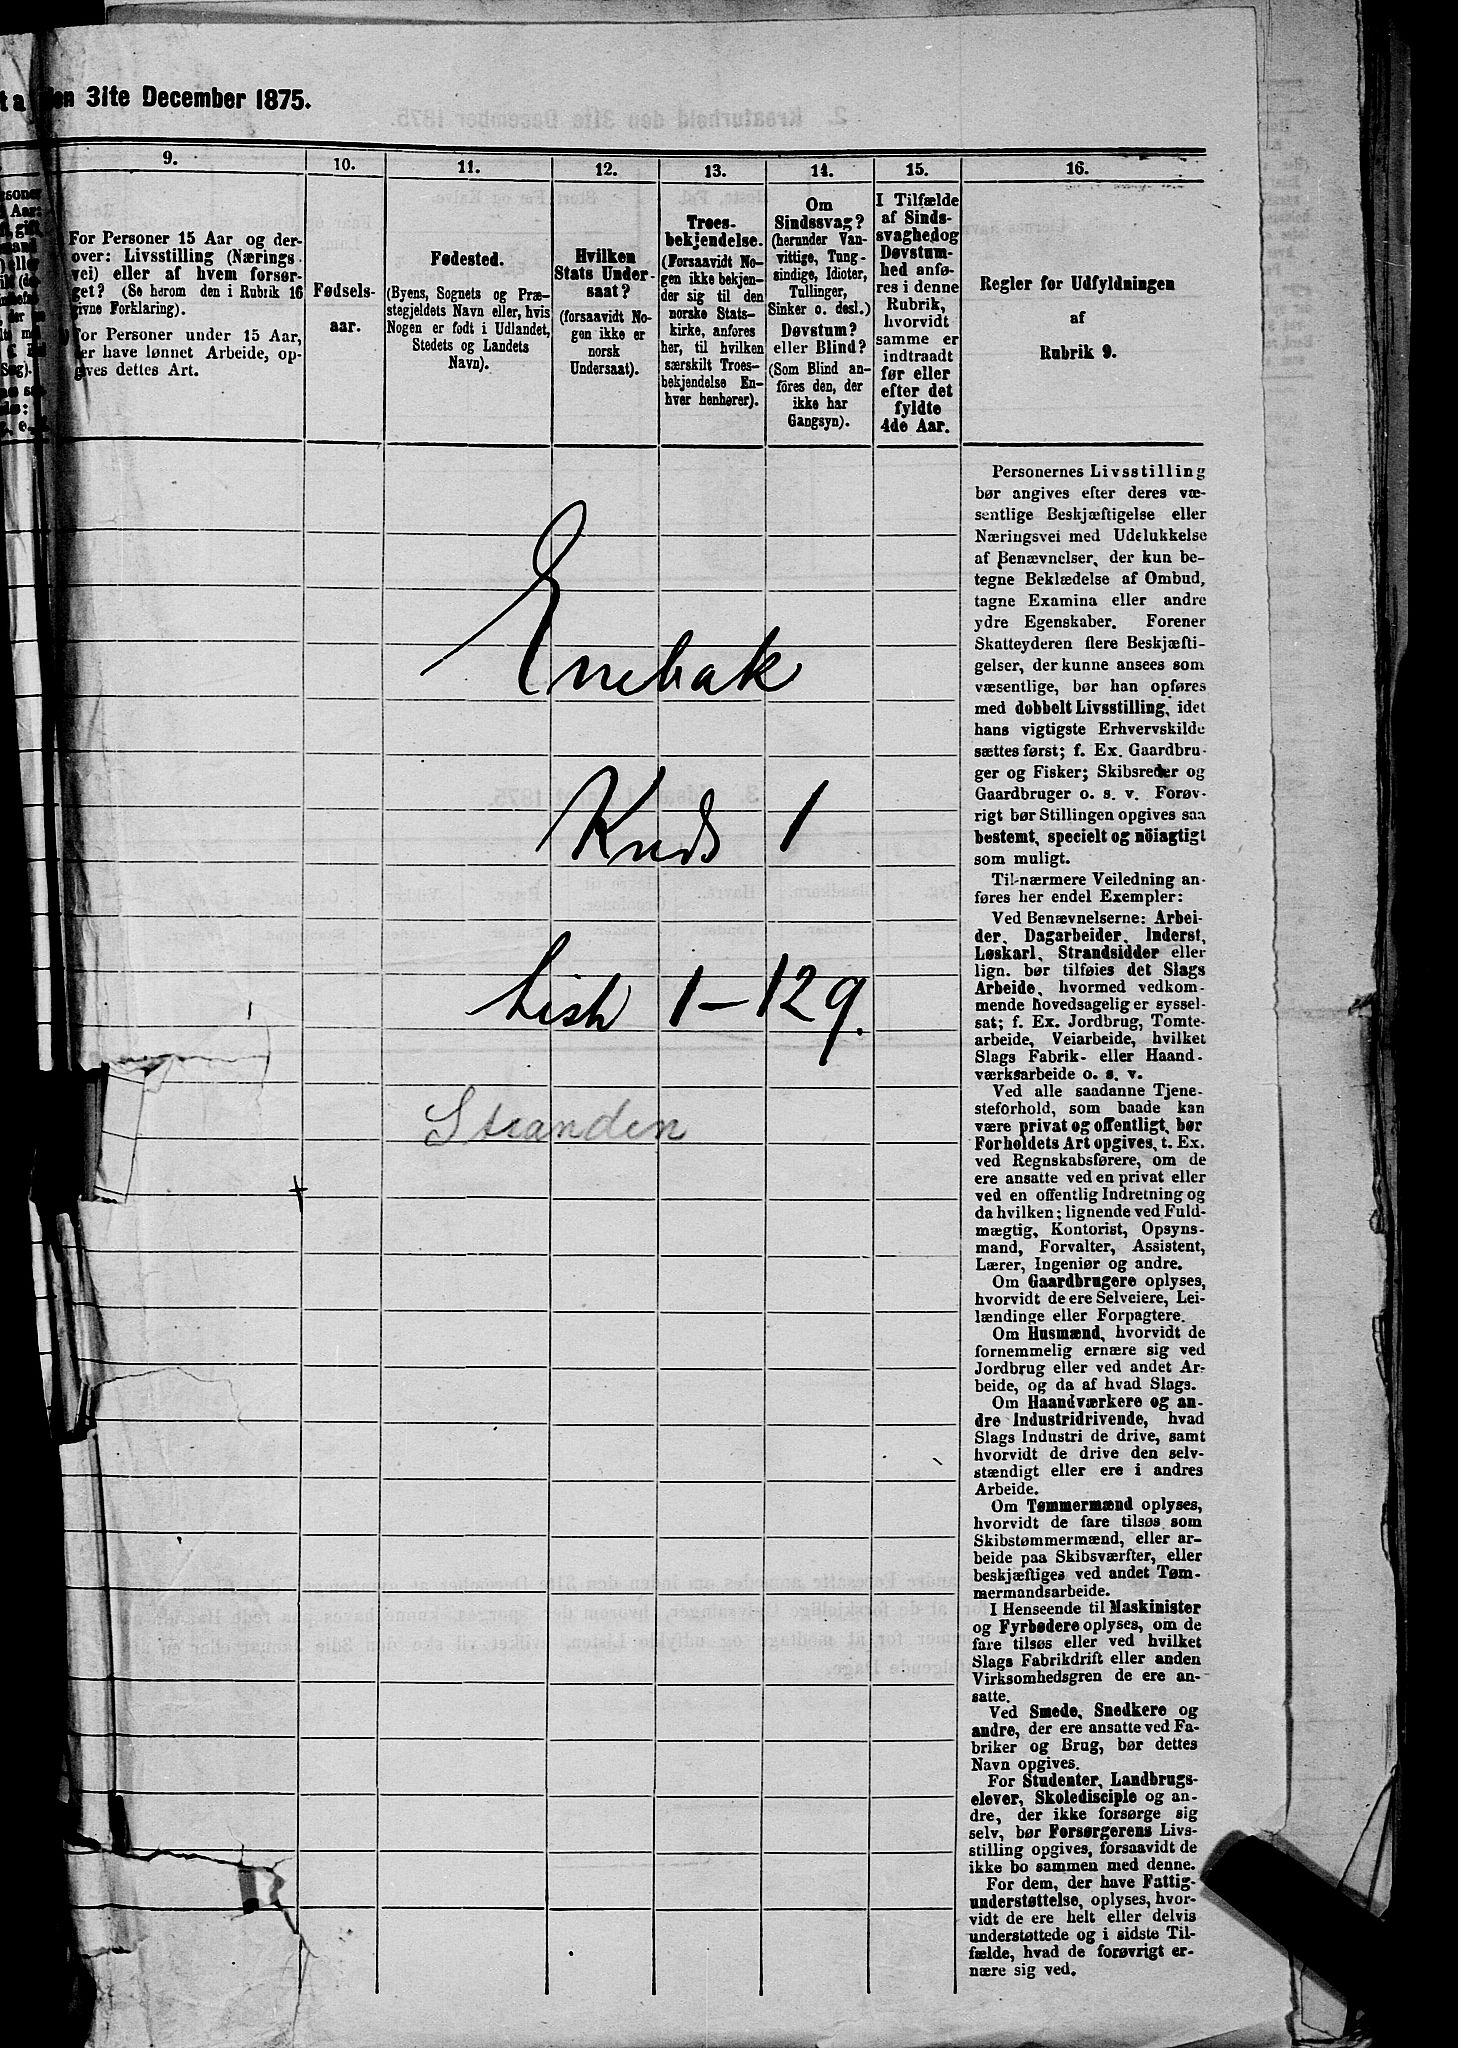 en 31te December 1875.
9.
For Personer 15 Aar og der-
over: Livsstilling (Nærings
vei) eller af hvem forsør-
get? (Se herom den i Rubrik 16
givne Forklaring).
For Personer under 15 Aar,
der have lønnet Arbeide, op-
gives dettes Art.
10.
Fødsels-
aar.
11.
Fødested.
(Byens, Sognets og Præ-
stegjeldets Navn eller, hvis
Nogen er født i Udlandet,
Stedets og Landets
Navn).
12.
Hvilken
Stats Under-
saat?
(forsaavidt No-
gen ikke er
norsk
Undersaat).
13.
Troes-
bekjendelse.
(Forsaavidt No-
gen ikke bekjen-
der sig til den
norske Stats-
kirke, anføres
her, til hvilken
særskilt Troes-
bekjendelse En-
hver henhører).
14.
Om
Sindssvag?
(herunder Van-
vittige, Tung-
sindige, Idioter,
Tullinger,
Sinker o. desl.)
Døvstum?
eller Blind?
(Som Blind an-
føres den, der
ikke har
Gangsyn).
15.
I Tilfælde
af Sinds-
svaghed og
Døvstum-
hed anfø-
res i denne
Rubrik,
hvorvidt
samme er
indtraadt
før eller
efter det
fyldte
4de Aar.
16.
Regler for Udfyldningen
af
Rubrik 9.
Enebak
Kreds 1
Liste 1-129.
Stranden
Personernes Livsstilling
bør angives efter deres væ-
sentlige Beskjæftigelse eller
Næringsvei med Udelukkelse
af Benævnelser, der kun be-
tegne Beklædelse af Ombud,
tagne Examina eller andre
ydre Egenskaber. Forener
Skatteyderen flere Beskjæfti-
gelser, der kunne ansees som
væsentlige, bør han opføres
med dobbelt Livsstilling, idet
hans vigtigste Erhvervskilde
sættes først; f. Ex. Gaardbru-
ger og Fisker; Skibsreder og
Gaardbruger o. s. v. Forøv-
rigt bør Stillingen opgives saa
bestemt, specielt og nöiagtigt
som muligt.
Til nærmere Veiledning an-
føres her endel Exempler:
Ved Benævnelserne: Arbei-
der, Dagarbeider, Inderst,
Løskarl, Strandsidder eller
lign. bør tilføies det Slags
Arbeide, hvormed vedkom-
mende hovedsagelig er syssel-
sat; f. Ex. Jordbrug, Tomte-
arbeide, Veiarbeide, hvilket
Slags Fabrik- eller Haand-
værksarbeide o. s. v.
Ved alle saadanne Tjene-
steforhold, som baade kan
være privat og offentligt, bør
Forholdets Art opgives, t. Ex.
ved Regnskabsførere, om de
ere ansatte ved en privat eller
ved en offentlig Indretning og
da hvilken; lignende ved Fuld-
mægtig, Kontorist, Opsyns-
mand, Forvalter, Assistent,
Lærer, Ingeniør og andre.
Om Gaardbrugere oplyses,
hvorvidt de ere Selveiere, Lei-
lændinge eller Forpagtere.
Om Husmænd, hvorvidt de
fornemmelig ernære sig ved
Jordbrug eller ved andet Ar-
beide, og da af hvad Slags.
Om Haandværkere og an-
dre Industridrivende, hvad
Slags Industri de drive, samt
hvorvidt de drive den selv-
stændigt eller ere i andres
Arbeide.
Om Tømmermænd oplyses,
hvorvidt de fare tilsøs som
Skibstømmermænd, eller ar-
beide paa Skibsværfter, eller
beskjæftiges ved andet Tøm-
mermandsarbeide.
I Henseende til Maskinister
og Fyrbødere oplyses, om de
fare tilsøs eller ved hvilket
Slags Fabrikdrift eller anden
Virksomhedsgren de ere an-
satte.
Ved Smede, Snedkere og
andre, der ere ansatte ved Fa-
briker og Brug, bør dettes
Navn opgives.
For Studenter, Landbrugs-
elever, Skoledisciple og an-
dre, der ikke forsørge sig
selv, bør Forsørgerens Livs-
stilling opgives, forsaavidt de
ikke bo sammen med denne.
For dem, der have Fattig-
understøttelse, oplyses, hvor-
vidt de ere helt eller delvis
understøttede og i sidste Til-
fælde, hvad de forøvrigt er-
nære sig ved.